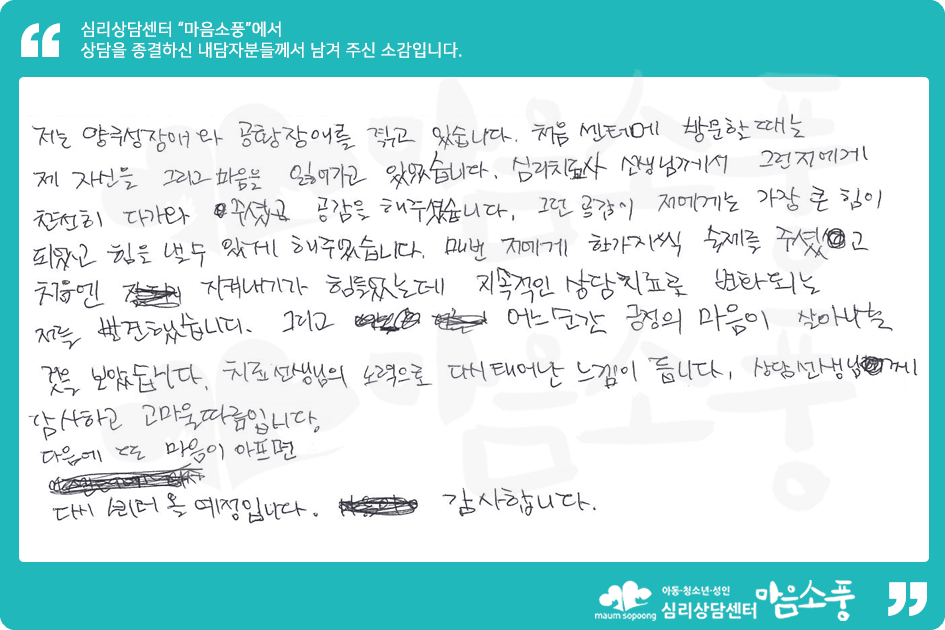 심리상담센터 “마음소풍”에서
상담을 종결하신 내담자분들께서 남겨 주신 소감입니다.
저는 양극성장애와 공황장애를 겪고 있습니다. 처음 센터에 방문할때는
제 자신을 그리고 마음을 잃어가고 있었습니다. 심리치료사 선생님께서 그런저에게
천천히 다가와 주셨고 공감을 해주셨습니다. 그런 공감이 저에게는 가장 큰 힘이
되었고 힘을 낼수 있게 해주었습니다. 매번 저에게 한가지씩 숙제를 주셨고
처음엔 지켜내기가 힘들었는데 지속적인 상담치료로 변화되는
저를 발견했습니다. 그리고 어느순간 긍정의 마음이 살아나는
것을 보았습니다. 치료선생님의 노력으로 다시태어난 느낌이 듭니다. 상담선생님께
감사하고 고마울따름입니다.
다음에 또 마음이 아프면
다시 올 예정입니다. 감사합니다.
maum sopoong
아동·청소년·성인
심리상담센터 마음소풍